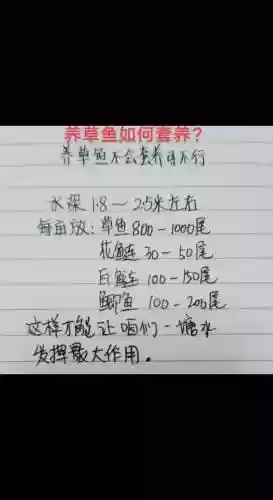 养草鱼如何套养?
养草鱼不会套养可不行
水深1.8~2.5米左右
每亩放:草鱼800-1000尾
花鲢30-50尾
白鲢100-150尾
鲫鱼100-200尾
这样才能让咱们一塘水
发挥最大作用。